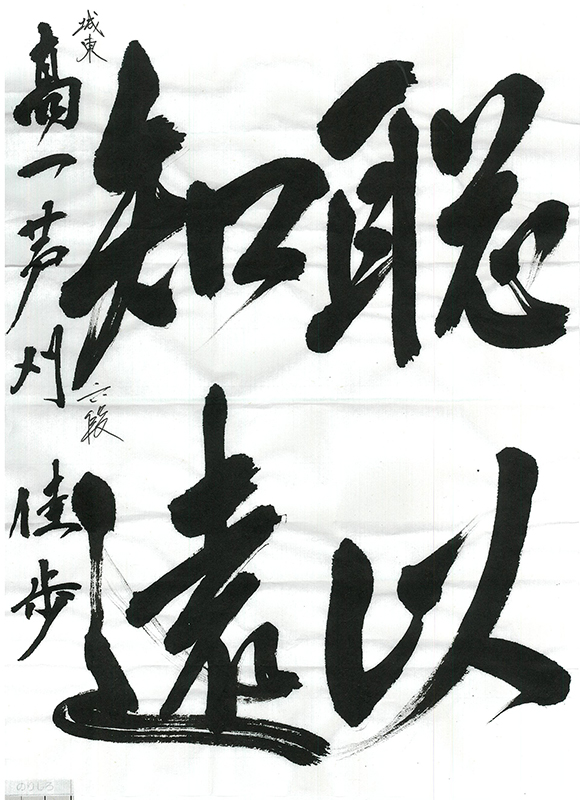 聡以
知遠
城東
高一 芦刈 佳歩
六段
のりしろ